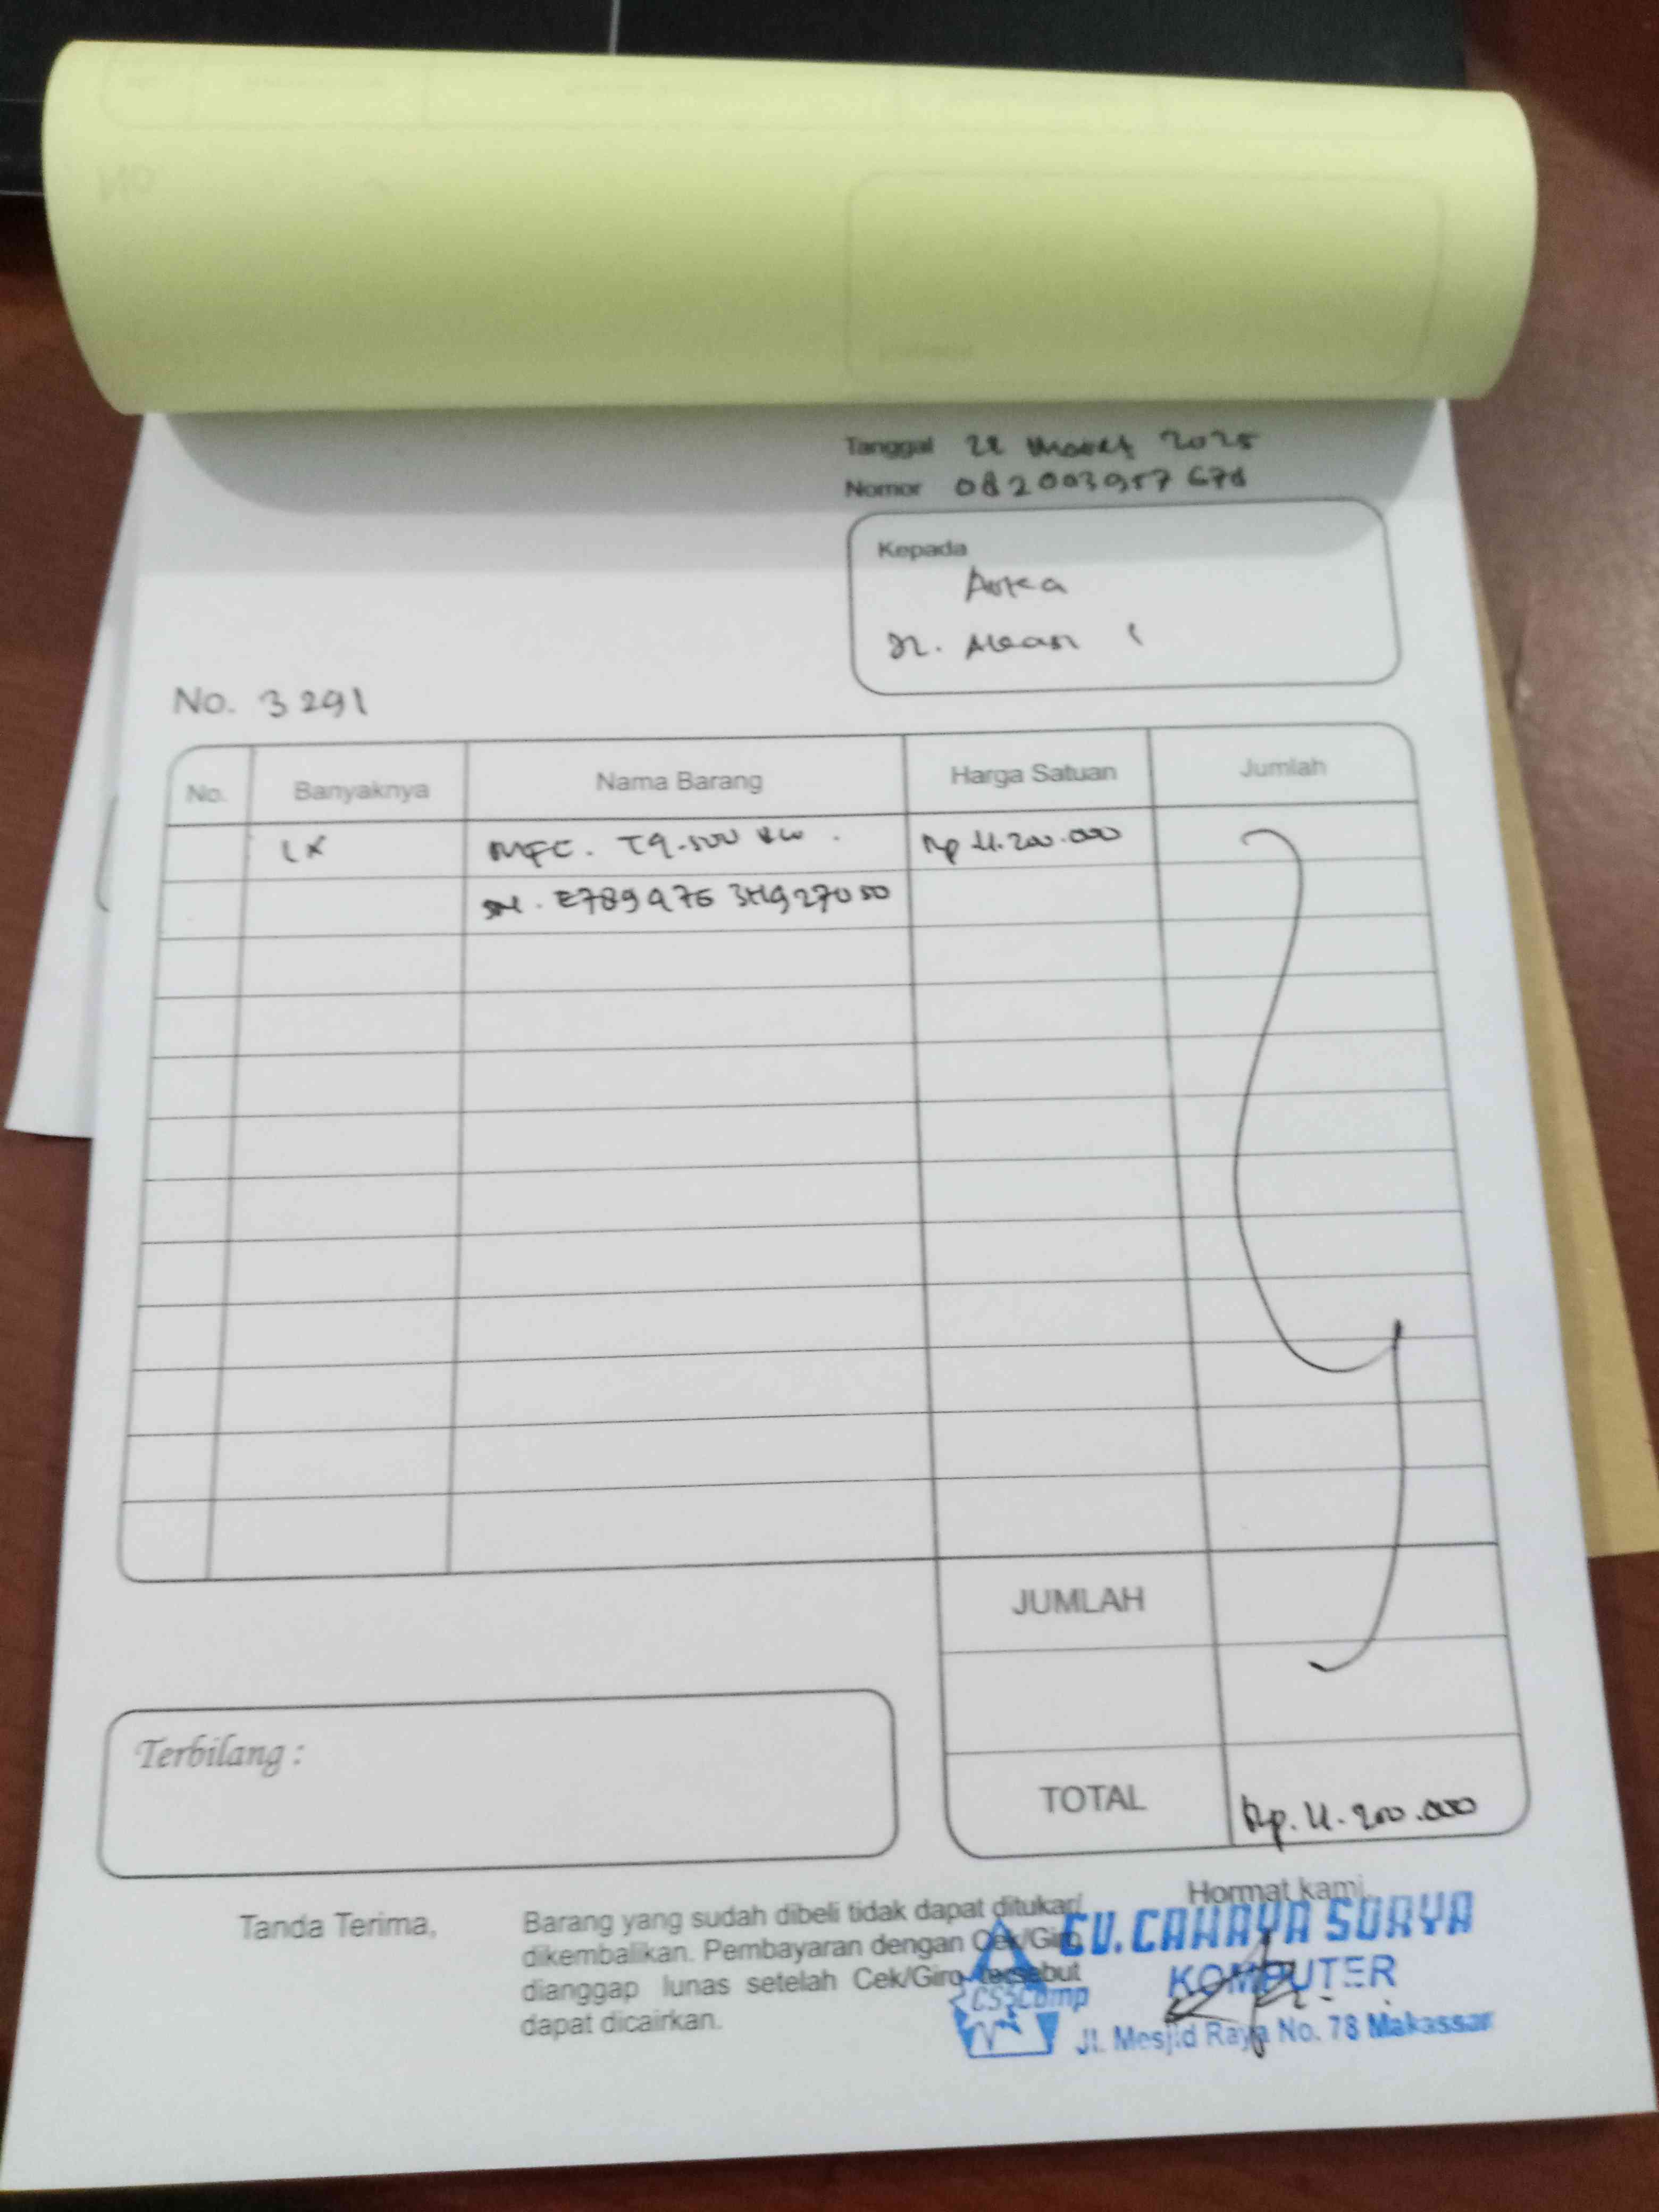 Tanggal 22 Maret 2025
Nomor 082003957678
Kepada
Jl.
No. 3291
No. Banyaknya Nama Barang Harga Satuan Jumlah
1x MFC. T9.500 Rp 11.200.000
SN. E789976 3H927050
JUMLAH
Terbilang :
TOTAL Rp. 11.200.000
Tanda Terima,
Barang yang sudah dibeli tidak dapat ditukar/
dikembalikan. Pembayaran dengan Cek/Giro
dianggap lunas setelah Cek/Giro tersebut
dapat dicairkan.
Hormat kami,
CV. CAHAYA SURYA
KOMPUTER
CS Comp
Jl. Mesjid Raya No. 78 Makassar